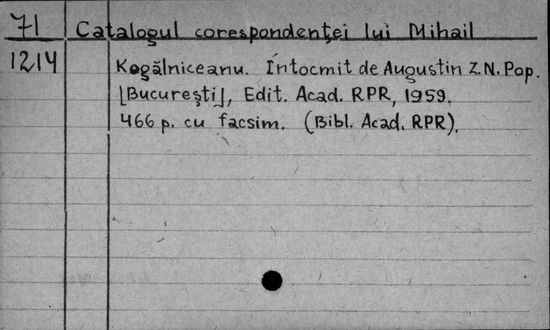 71 Catalogul corespondenţei lui Mihail
1214 Kogălniceanu. Întocmit de Augustin Z.N. Pop.
[Bucureşti], Edit. Acad. RPR, 1959.
466 p. cu facsim. (Bibl. Acad. RPR).